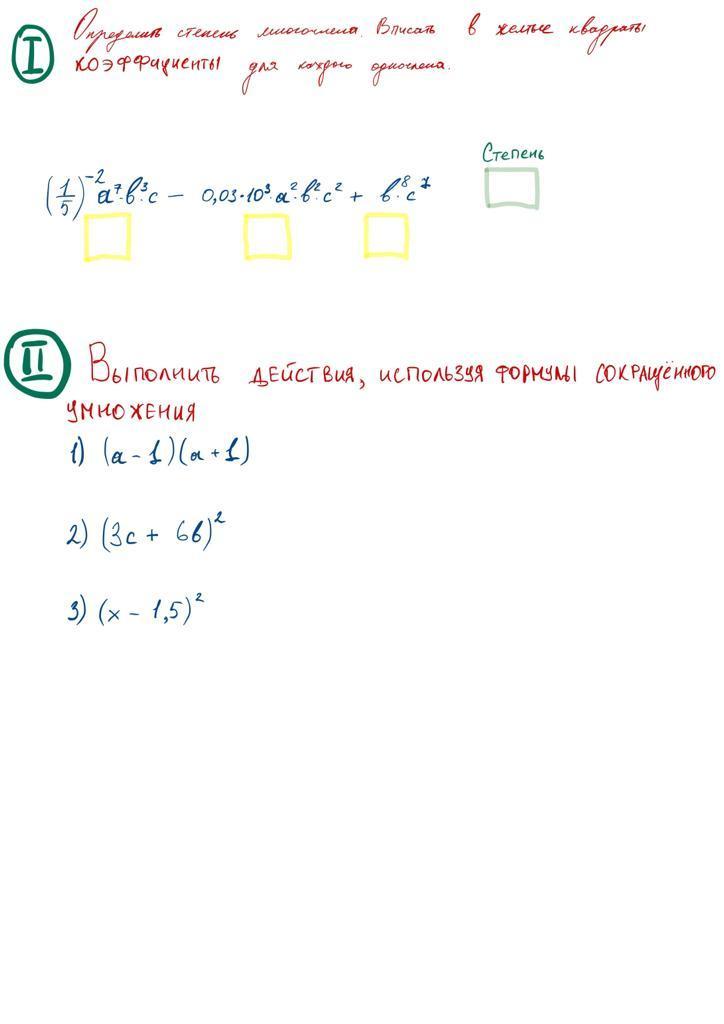 I Определить степень многочлена. Вписать в желтые квадраты
коэффициенты для каждого одночлена.
Степень
(1/5)⁻² a⁷·b³·c − 0,03·10³·a²·b²·c² + b⁸·c⁷
II Выполнить действия, используя формулы сокращённого
умножения
1) (a − 1)(a + 1)
2) (3c + 6b)²
3) (x − 1,5)²